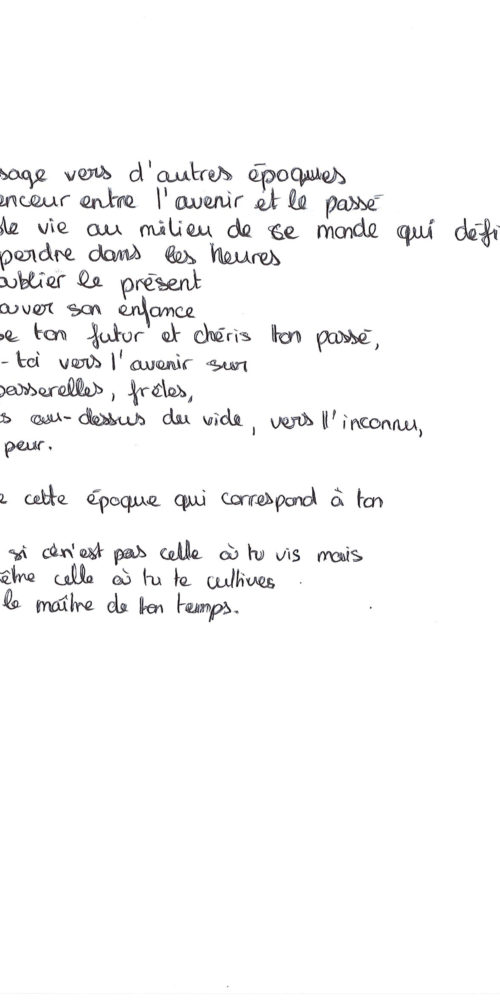 sage vers d'autres époques
enceur entre l'avenir et le passé
de vie au milieu de ce monde qui défi
perdre dans les heures
oublier le présent
ouver son enfance
se ton futur et chéris ton passé,
-toi vers l'avenir sur
passerelles, frêles,
s au-dessus du vide, vers l'inconnu,
peur.
e cette époque qui correspond à ton
si ce n'est pas celle où tu vis mais
être celle où tu te cultives
le maître de ton temps.